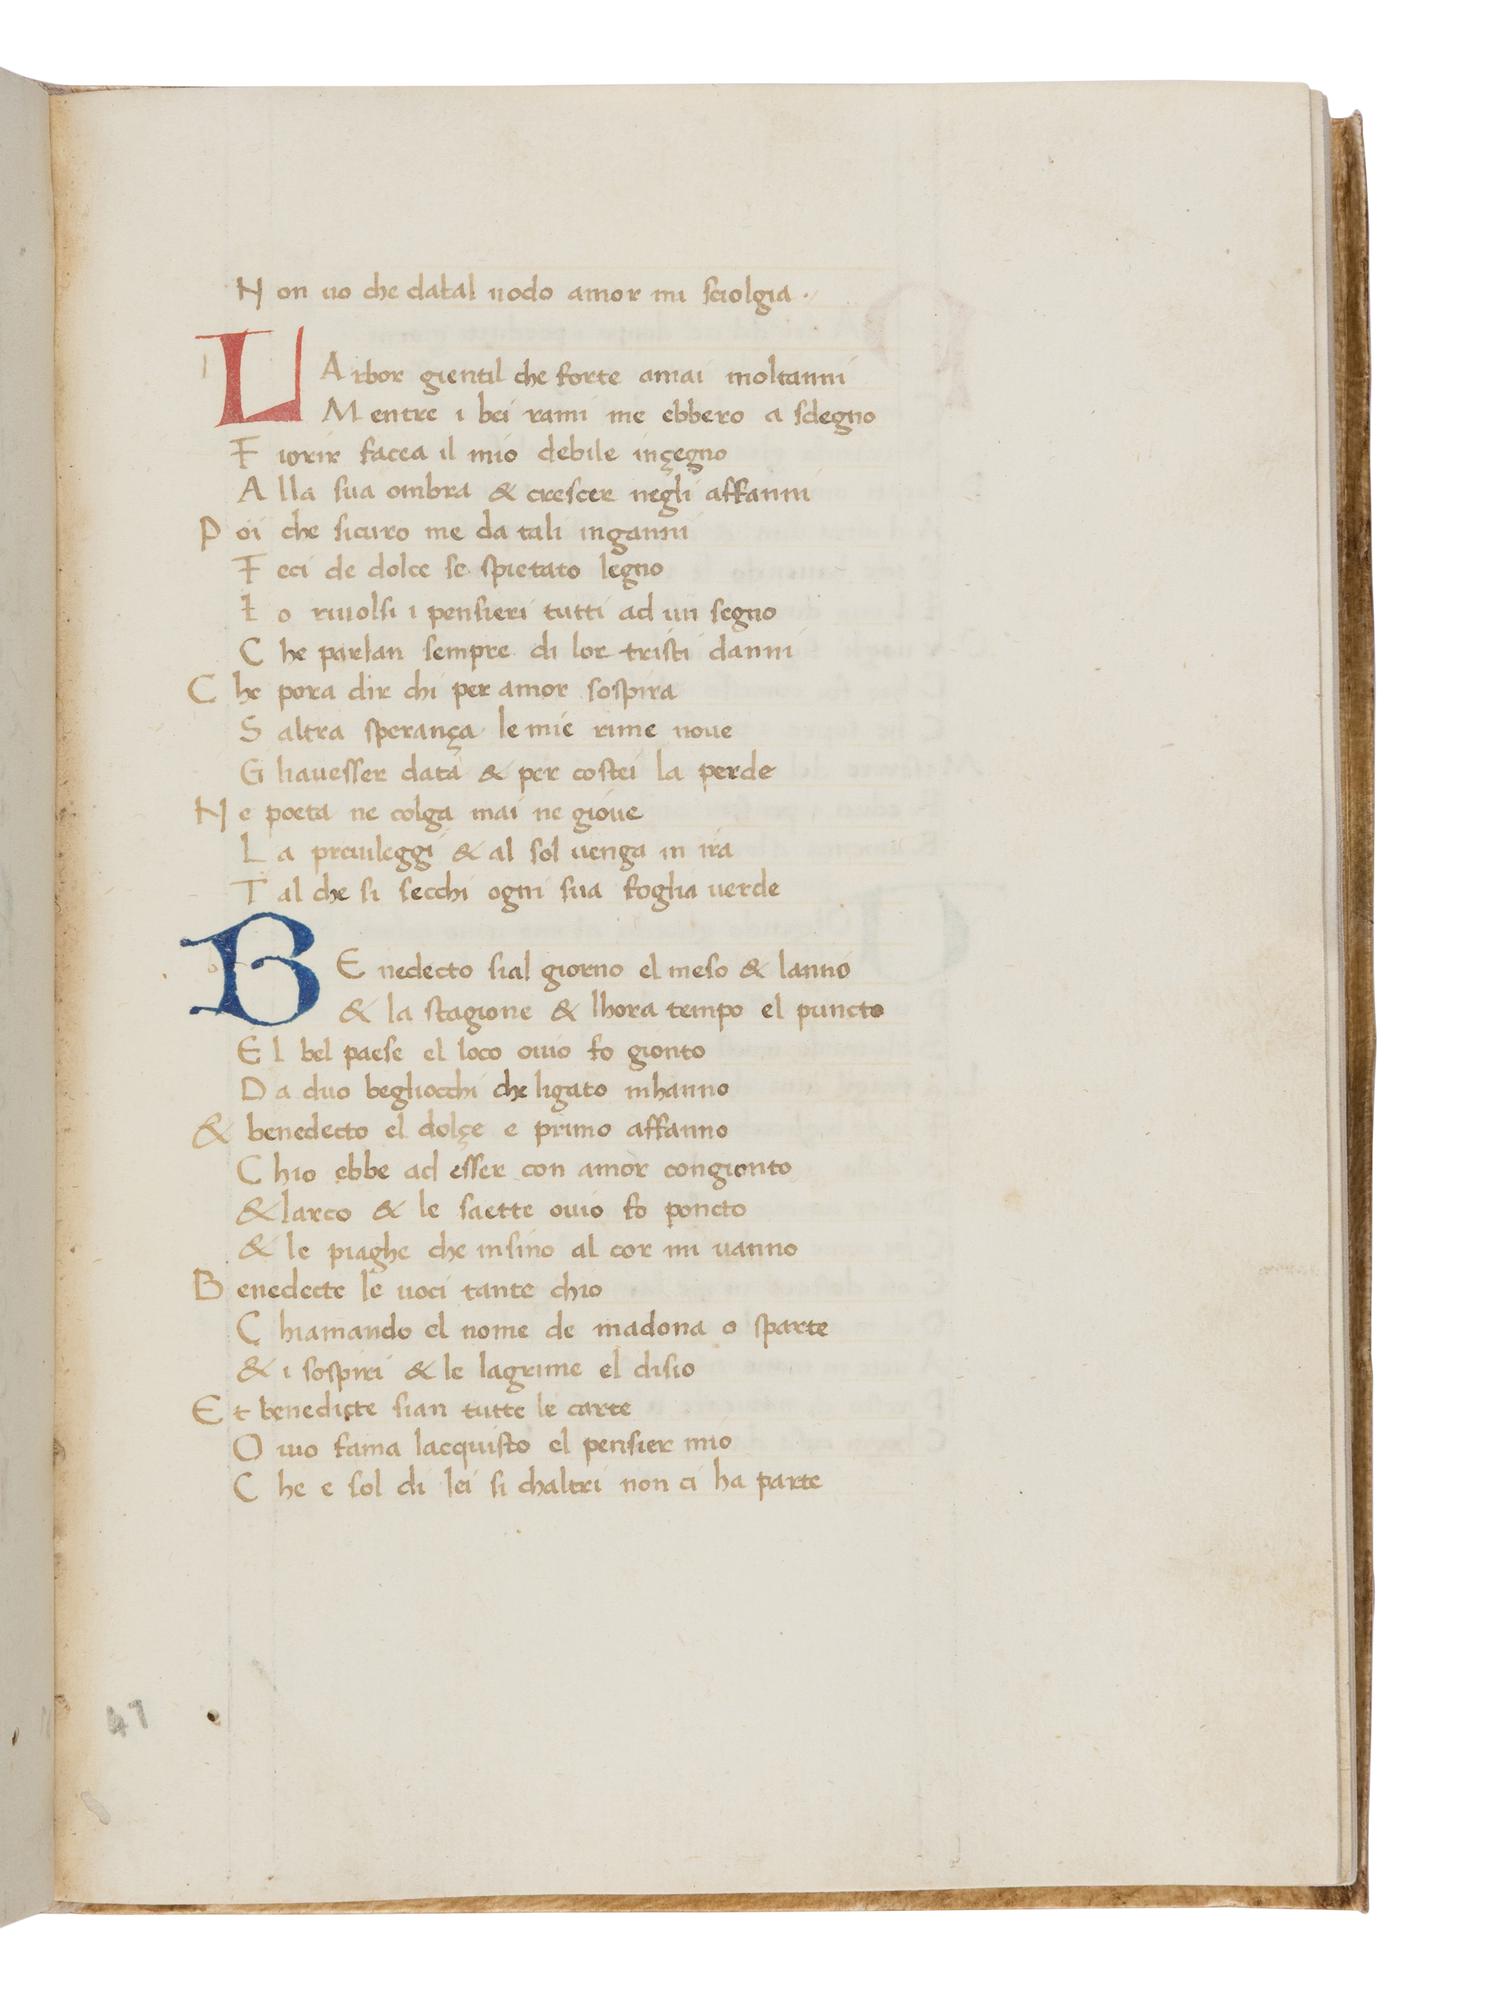 Non uo che datal nodo amor mi sciolgia ·
LArbor gientil che forte amai moltanni
Mentre i bei rami me ebbero a sdegno
Fiorir facea il mio debile inçegno
Alla sua ombra & crescer negli affanni
Poi che sicuro me da tali inganni
Feci de dolce se spietato legno
Io riuolsi i pensieri tutti ad un segno
Che parlan sempre di lor tristi danni
Che pora dir chi per amor sospira
Saltra sperança le mie rime noue
Ghauesser data & per costei la perde
Ne poeta ne colga mai ne gioue
La preuileggi & al sol uenga in ira
Tal che si secchi ogni sua foglia uerde
BEnedecto sial giorno el meso & lanno
& la stagione & lhora tempo el puncto
El bel paese el loco ouio fo gionto
Da duo begliocchi che ligato mhanno
& benedecto el dolçe e primo affanno
Chio ebbe ad esser con amor congionto
& larco & le saette ouio fo poncto
& le piaghe che insino al cor mi uanno
Benedecte le uoci tante chio
Chiamando el nome de madona o sparte
& i sospiri & le lagrime el disio
Et benedicte sian tutte le carte
Ouio fama lacquisto el pensier mio
Che e sol di lei si chaltri non ci ha parte
47